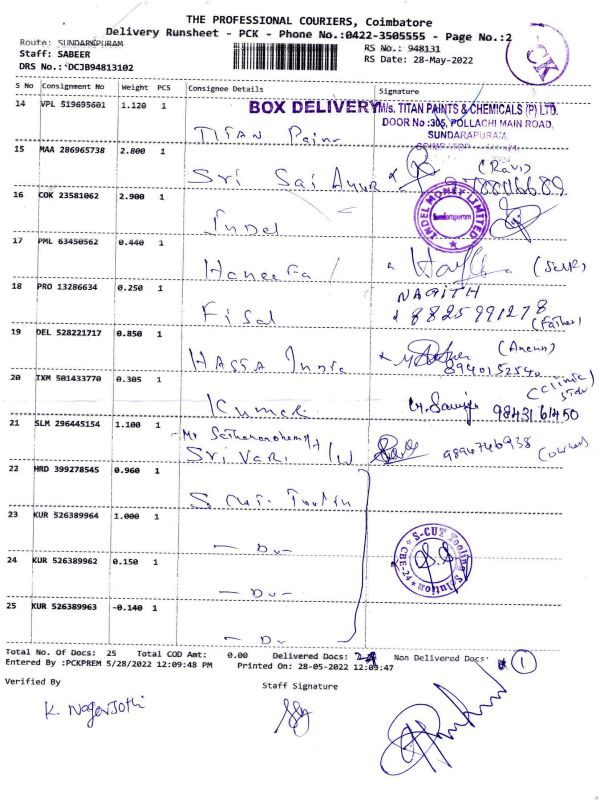 THE PROFESSIONAL COURIERS, Coimbatore
Delivery Runsheet - PCK - Phone No.:0422-3505555 - Page No.:2
Route: SUNDARAPURAM
RS No.: 948131
Staff: SABEER
RS Date: 28-May-2022
DRS No.: DCJB94813102
PCK
S No Consignment No Weight PCS Consignee Details Signature
14 VPL 519695601 1.120 1
BOX DELIVERY
M/s. TITAN PAINTS & CHEMICALS (P) LTD.
DOOR No :305, POLLACHI MAIN ROAD,
SUNDARAPURAM,
TITAN Paint
15 MAA 286965738 2.800 1
Sri Sai Ayur
(Ravi)
16 COK 23581062 2.900 1
Indel
INDEL MONEY LIMITED
Sundarapuram
17 PML 63450562 0.440 1
Haneefa
(Self)
18 PRO 13286634 0.250 1
Fisal
NAQITH
8825991278
(Father)
19 DEL 528221717 0.850 1
HASSA India
8940152540
20 IXM 501433770 0.305 1
Kumar
(Clinic)
9843161450
21 SLM 296445154 1.100 1
Mr
Sri Vari
9894746938
(owner)
22 HRD 399278545 0.960 1
S CUT Toolin
23 KUR 526389964 1.000 1
— Do —
S-CUT Tooling Solution
CBE-24
24 KUR 526389962 0.150 1
— Do —
25 KUR 526389963 -0.140 1
— Do
Total No. Of Docs: 25 Total COD Amt: 0.00 Delivered Docs: 24 Non Delivered Docs: 1
Entered By :PCKPREM 5/28/2022 12:09:48 PM Printed On: 28-05-2022 12:09:47
Verified By
Staff Signature
K. NagerJothi